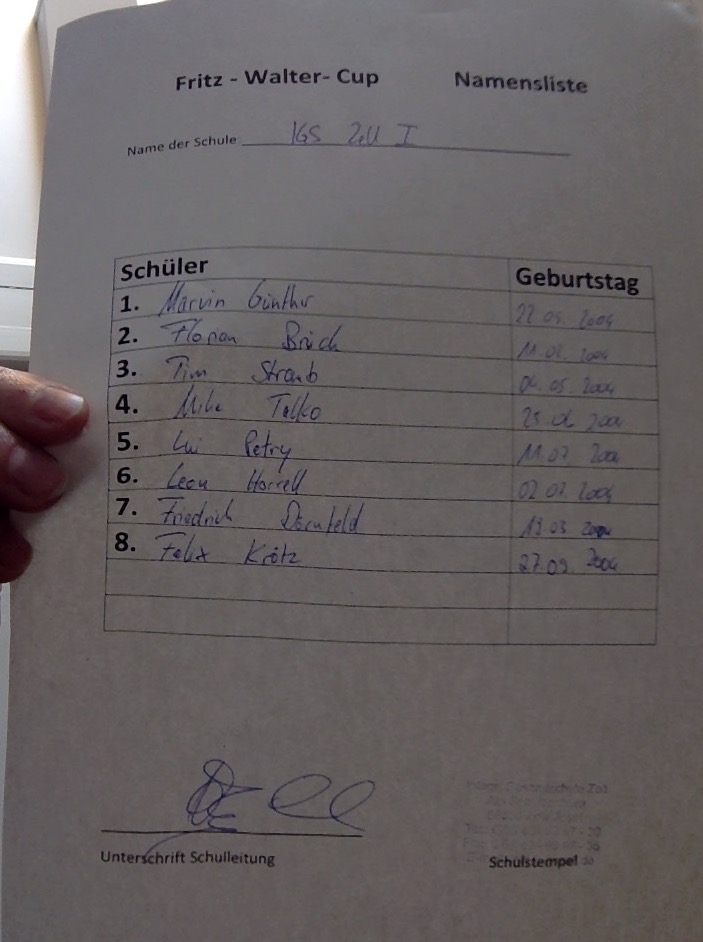 Fritz - Walter- Cup Namensliste
Name der Schule IGS Zell I
Schüler Geburtstag
1. Marvin Günther 22.05. 2004
2. Florian Brück 11.02. 2004
3. Tim Straub 04.05. 2004
4. Mike Talko 25.06 2004
5. Lui Petry 11.07 2004
6. Leon Horrell 02.07. 2004
7. Friedrich Dornfeld 19.03 2004
8. Felix Krötz 27.09 2004
Unterschrift Schulleitung
Schulstempel